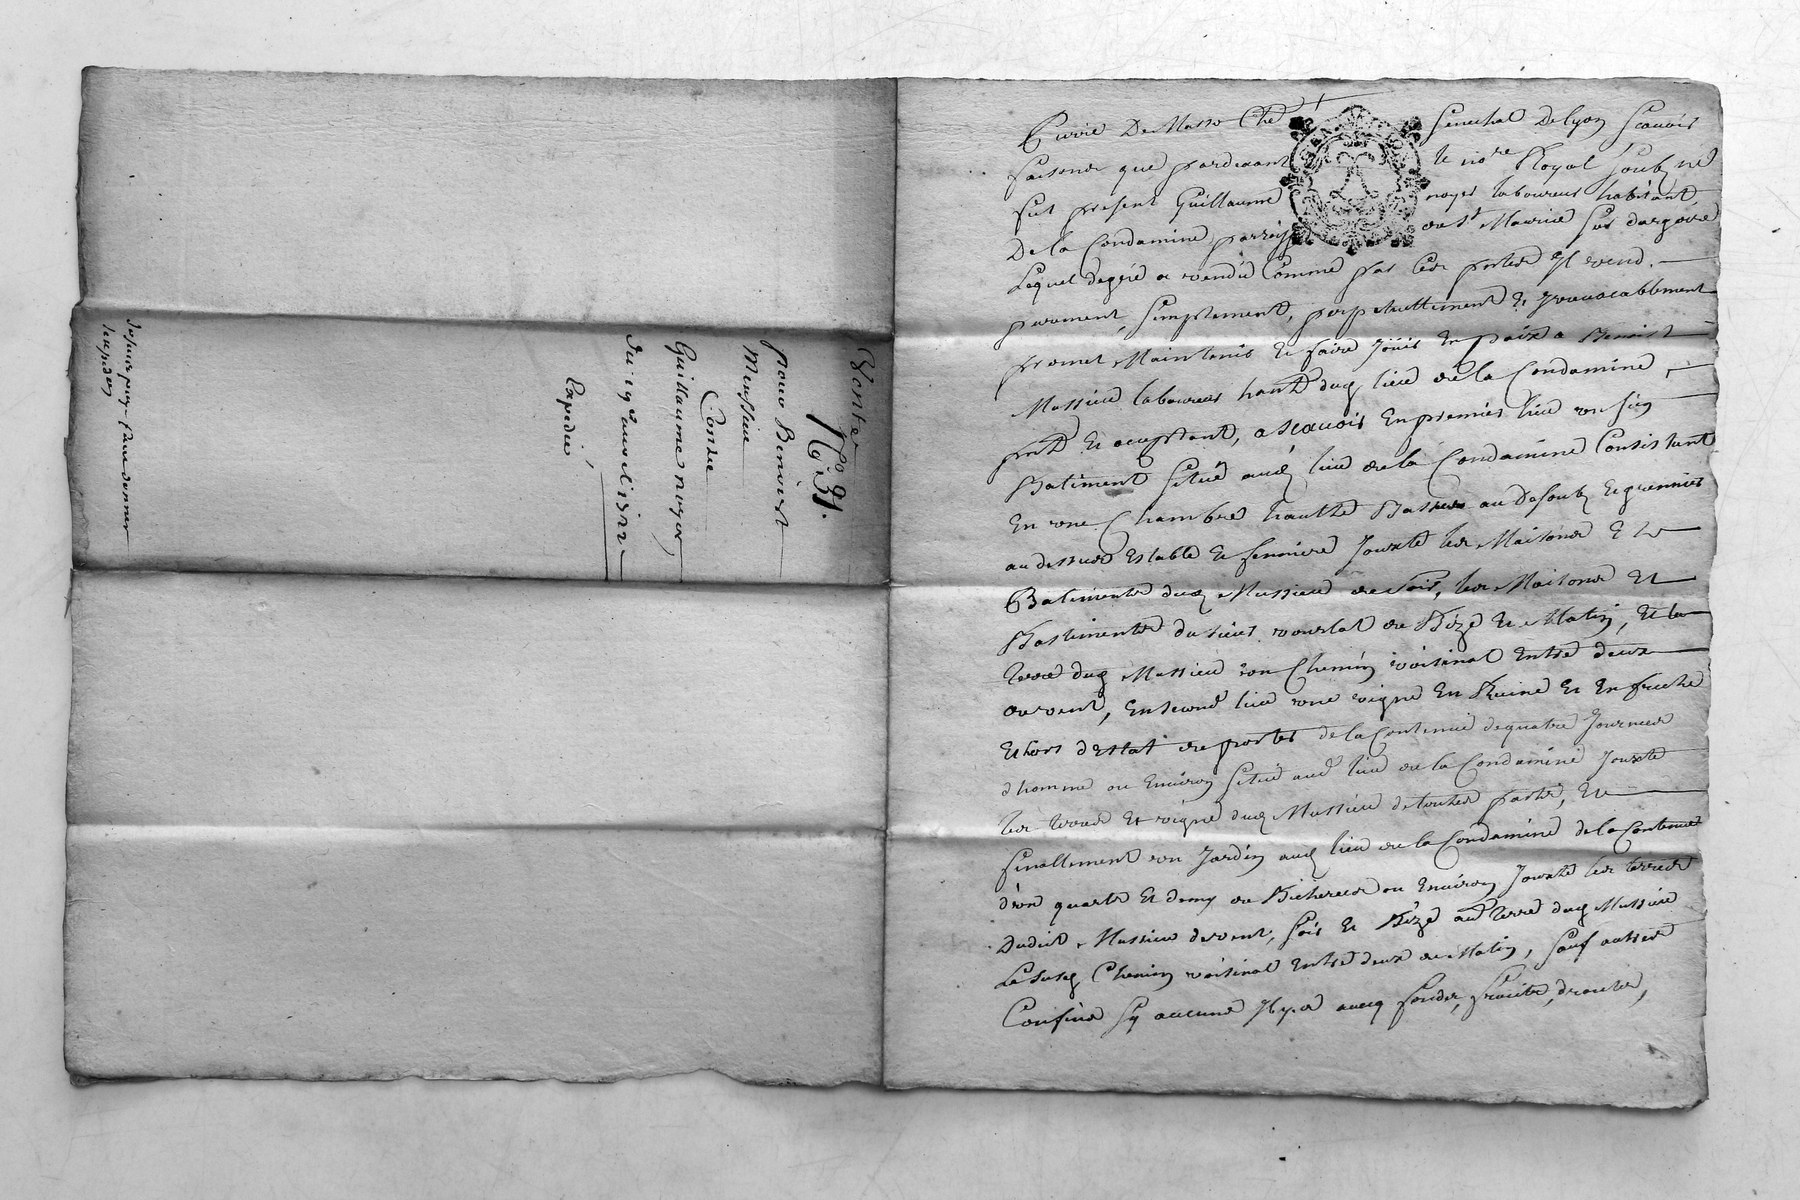 Vente
N° 31.
pour Benoist
Messieu
Contre
Guillaume noyer
du 19e avril 1722
Expedié
Pierre De Masso Che Senechal De lyon Scavoir
faisons que pardevant le no.re Royal soubz.né
fut present Guillaume noyer laboureur habitant
De la Condamine parroisse de St Maurice sur dargoire
Lequel degré a vendu Comme par Ces portes Il vend
purement, simplement, perpetuellement & Irrevocablement
promet Maintenir & faire Jouir En paix a Benoist
Messieu laboureur hant dud lieu de la Condamine
pnt & aceptant, a scavoir En premier lieu un sien
Batiment situé aud lieu de la Condamine Consistant
En une Chambre haulte Basse au dessoubz & grennier
au dessus Estable & fenniere Jouxte les Maisons & le
Batiments dud Messieu de soir, les Maisons Et
Bastiments du sieur vourlat de Bize & Matin, Et la
terre dud Messieu un Chemin voisinal Entre deux
de vent, En second lieu une vigne En Ruine Et En friche
Et hors d'Estat de porter de la Contenue de quatre Journées
d'homme ou Environ située aud lieu de la Condamine Jouxte
les terres Et vigne dud Messieu de toutes parts, Et
finallement un Jardin aud lieu de la Condamine de la Contenue
d'un quart Et demy de Bicherée ou Environ Jouxte les terres
Dudit Messieu de vent, soir & Bize aud terre dud Messieu
Le susd Chemin voisinal Entre deux de Matin, sauf autres
Confins sy aucuns Il y a avecq fonds, fruits, droits,